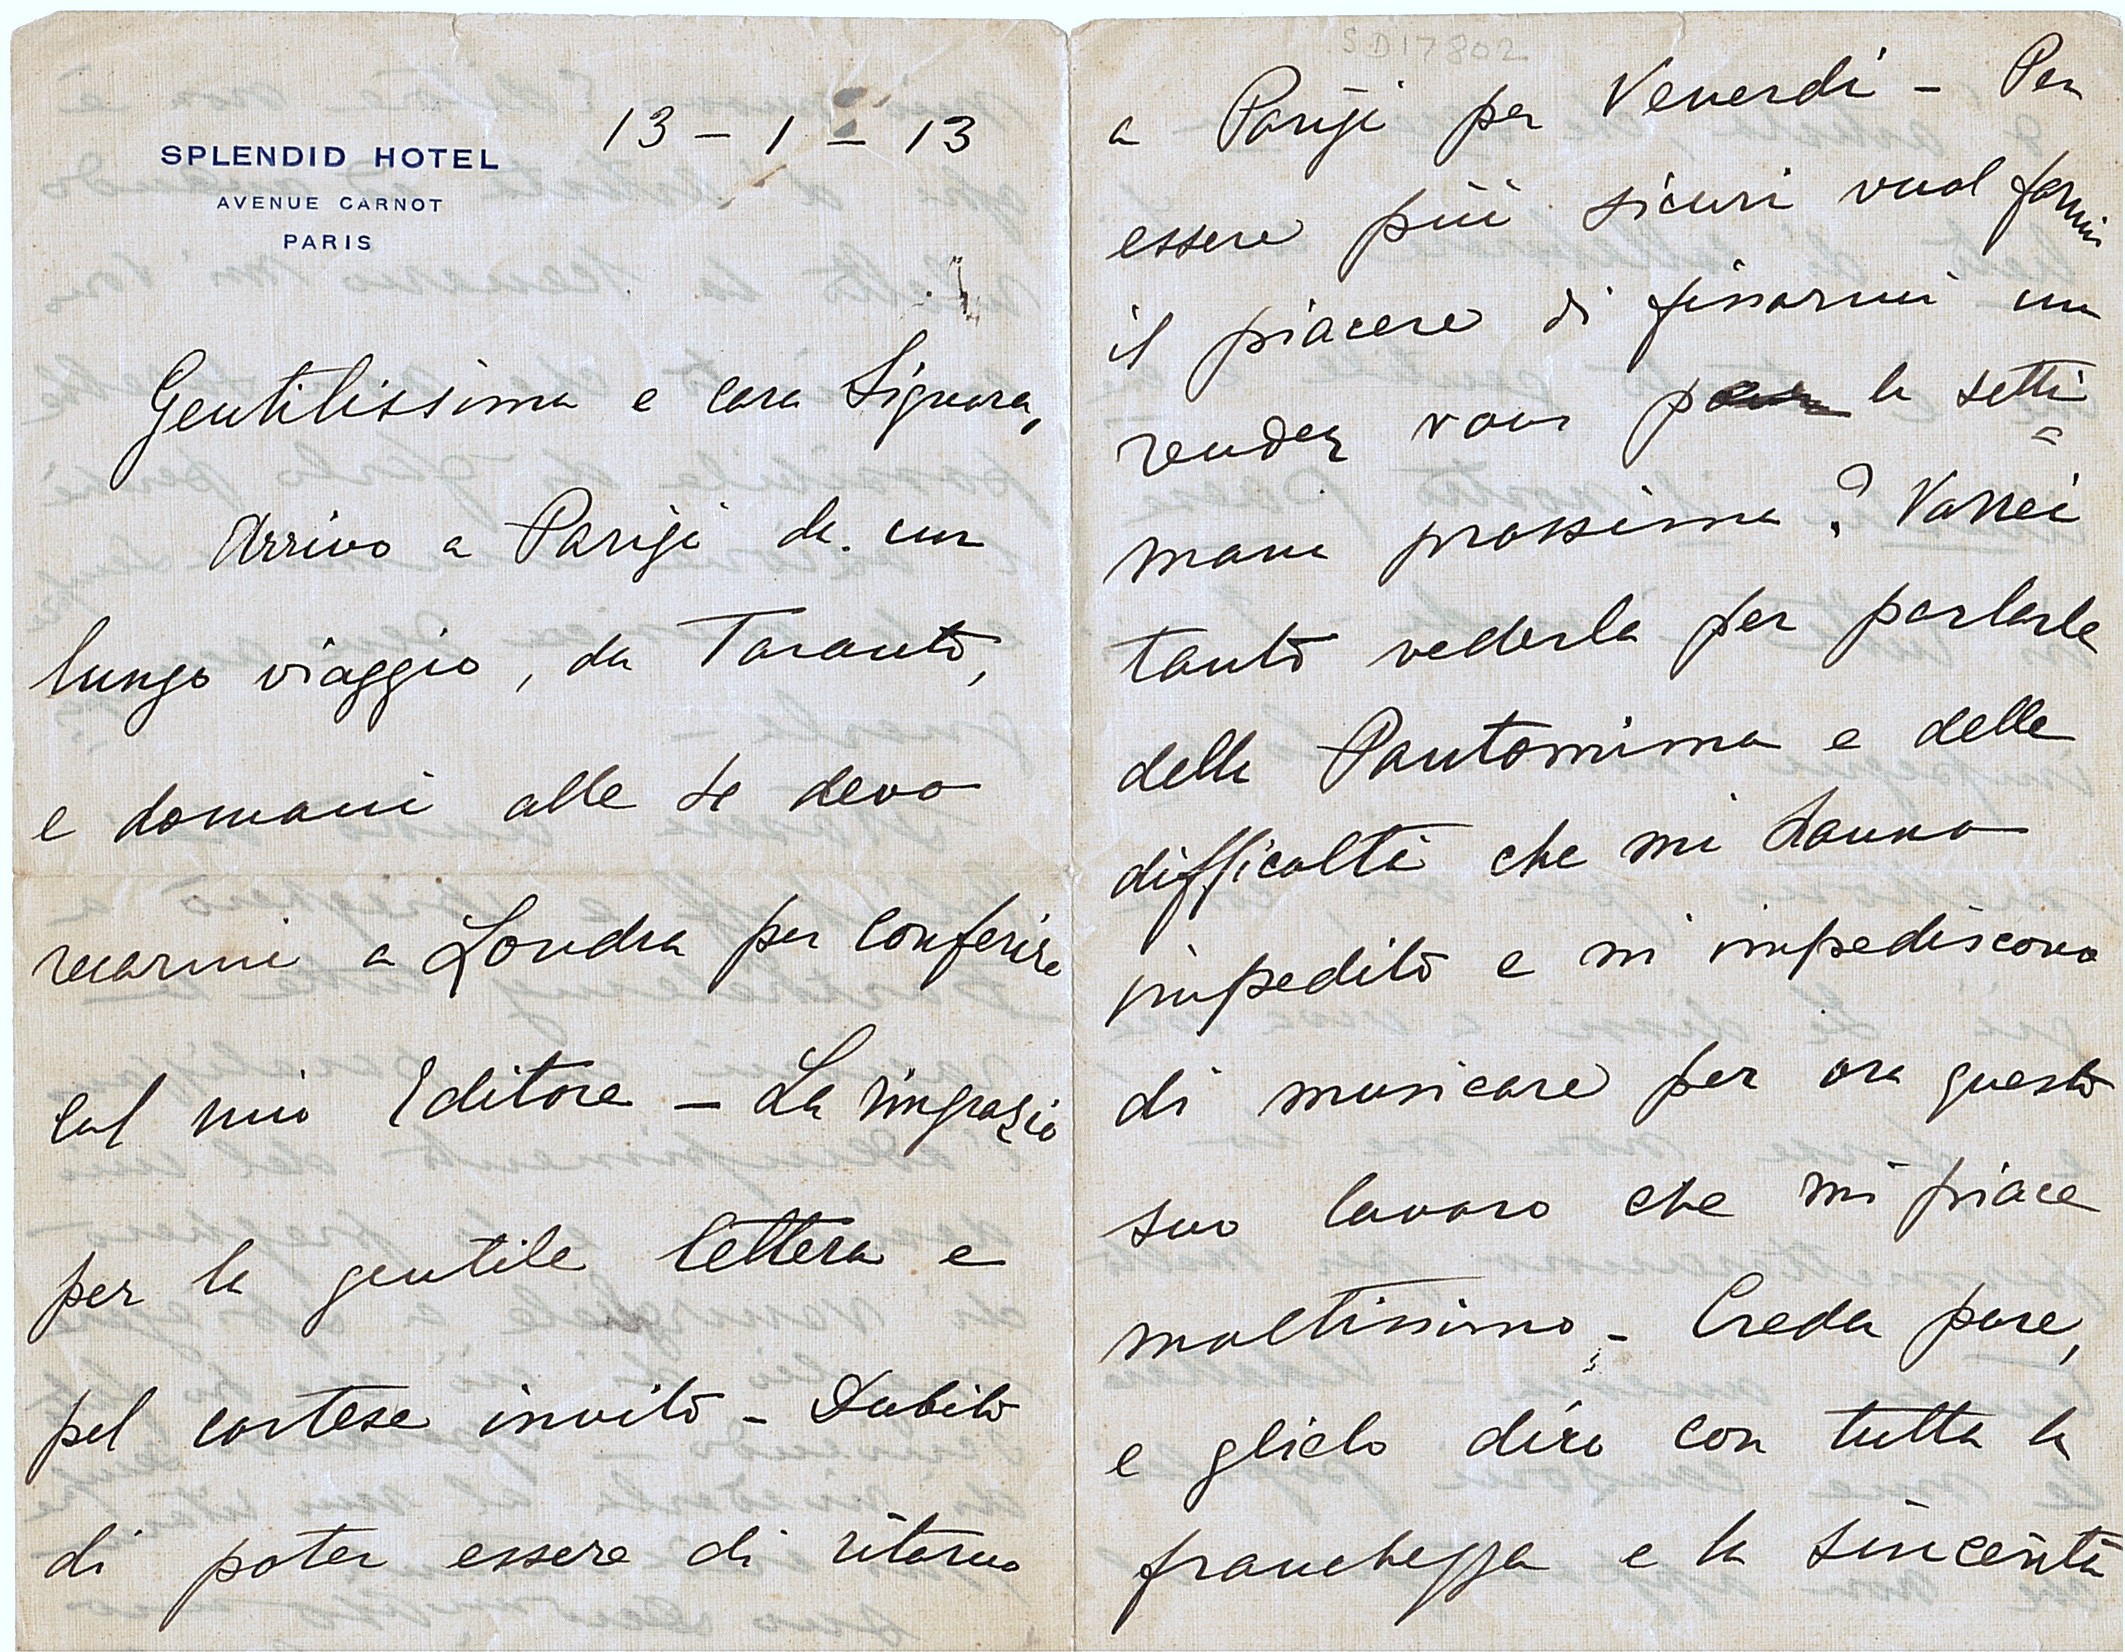 SPLENDID HOTEL
AVENUE CARNOT
PARIS
13 – 1 – 13
Gentilissima e cara Signora,
Arrivo a Parigi da un
lungo viaggio, da Taranto,
e domani alle 4 devo
recarmi a Londra per conferire
col mio Editore – La ringrazio
per la gentile lettera e
pel cortese invito – Dubito
di poter essere di ritorno
SD17802
a Parigi per Venerdì – Per
essere più sicuri vuol farmi
il piacere di fissarmi un
rendez vous la setti=
mana prossima? Vorrei
tanto vederla per parlarle
della Pantomima e delle
difficoltà che mi hanno
impedito e mi impediscono
di musicare per ora questo
suo lavoro che mi piace
moltissimo – Creda pure,
e glielo dirò con tutta la
franchezza e la sincerità